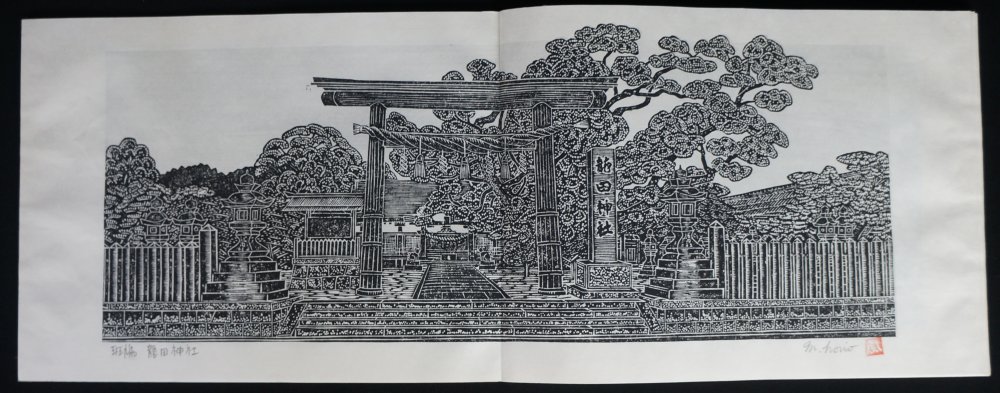 龍田神社
斑鳩 龍田神社